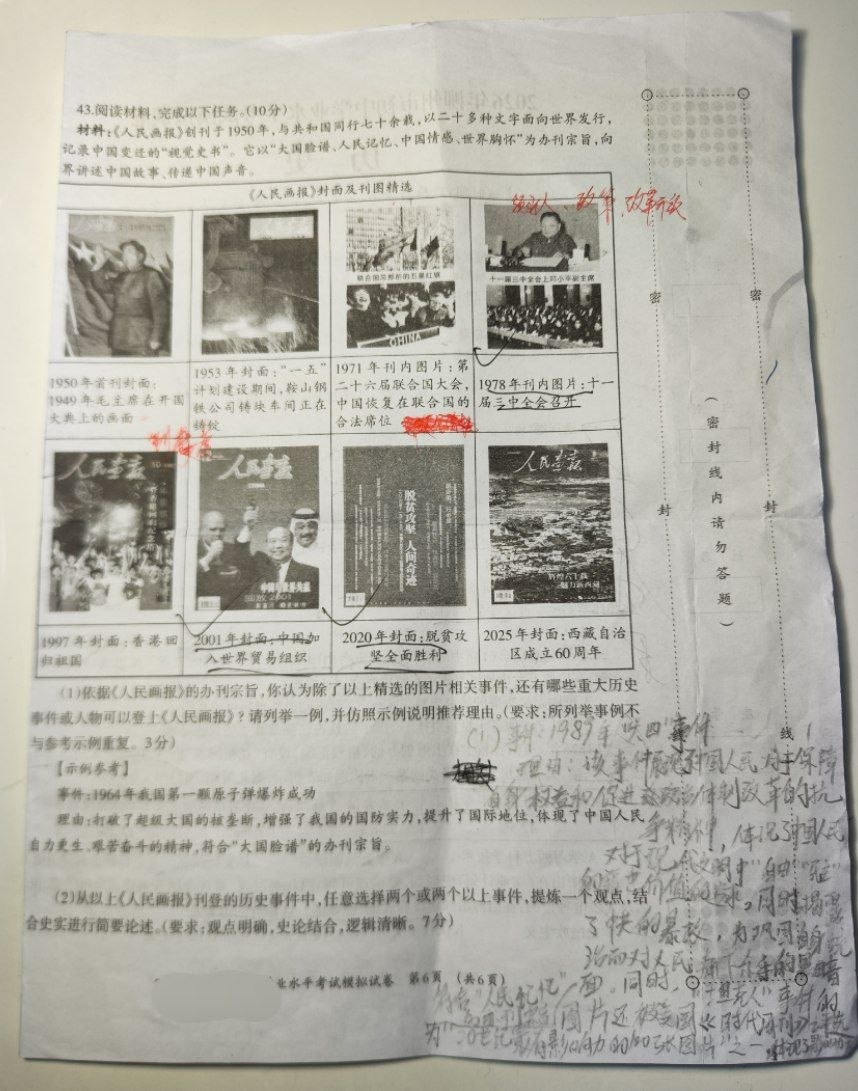 43.阅读材料,完成以下任务。(10分)
材料:《人民画报》创刊于1950年,与共和国同行七十余载,以二十多种文字面向世界发行,
记录中国变迁的“视觉史书”。它以“大国脸谱、人民记忆、中国情感、世界胸怀”为办刊宗旨,向
界讲述中国故事、传递中国声音。
《人民画报》封面及刊图精选
领导人、政策、改革开放
联合国总部前的五星红旗
CHINA
十一届三中全会上邓小平副主席
1950年首刊封面:
1949年毛主席在开国
大典上的画面
1953年封面:“一五”
计划建设期间,鞍山钢
铁公司铸锭车间正在
铸锭
1971年刊内图片:第
二十六届联合国大会,
中国恢复在联合国的
合法席位
1978年刊内图片:十一
届三中全会召开
人民画报
人民画报
中国与世界共赢
回放2001
脱贫攻坚 人间奇迹
人民画报
1997年封面:香港回
归祖国
2001年封面:中国加
入世界贸易组织
2020年封面:脱贫攻
坚全面胜利
2025年封面:西藏自治
区成立60周年
(1)依据《人民画报》的办刊宗旨,你认为除了以上精选的图片相关事件,还有哪些重大历史
事件或人物可以登上《人民画报》?请列举一例,并仿照示例说明推荐理由。(要求:所列举事例不
与参考示例重复。3分)
【示例参考】
事件:1964年我国第一颗原子弹爆炸成功
理由:打破了超级大国的核垄断,增强了我国的国防实力,提升了国际地位,体现了中国人民
自力更生、艰苦奋斗的精神,符合“大国脸谱”的办刊宗旨。
(2)从以上《人民画报》刊登的历史事件中,任意选择两个或两个以上事件,提炼一个观点,结
合史实进行简要论述。(要求:观点明确,史论结合,逻辑清晰。7分)
业水平考试模拟试卷 第6页 (共6页)
(1)事件:1989年“六四”事件
理由:该事件展现了中国人民为了保障
自身权益和促进政治体制改革的抗
争精神,体现了中国人民
对于现代文明中“自由”“民主”
价值的追求。同时揭露
了中共的暴政,为巩固自身统
治而对人民痛下杀手的黑暗
面。同时,“坦克人”事件的
符合“人民记忆”
图片还被美国《时代周刊》评选
为“世纪最有影响力的100张图片”之一
密
封
线
(密封线内请勿答题)
密
封
线